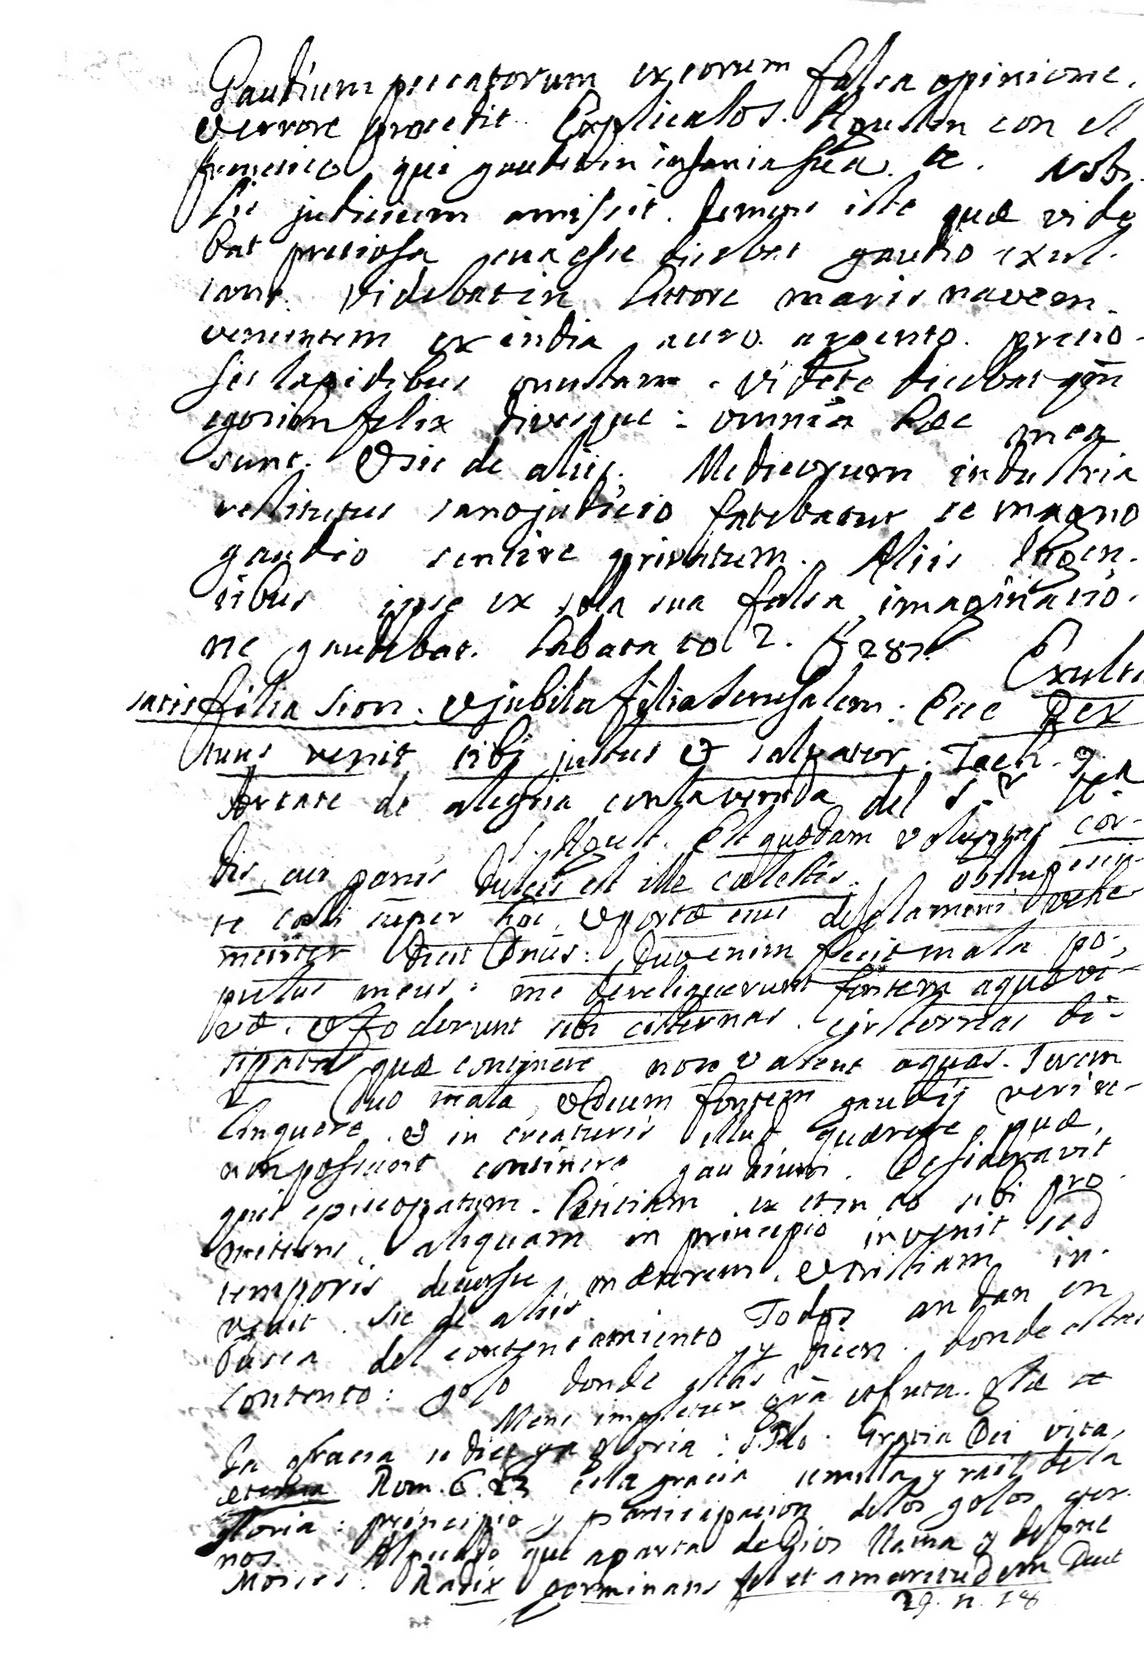 Gaudium peccatorum ex eorum falsa opinione,
& errore procedit. Explicalo S. Agustin con el
frenetico qui gaudet in insania sua. &. Nobi-
lis judicium amissit. Demens iste quæ vide
bat pretiosa, sua esse dicebat gaudio exul-
tans. Videbat in littore maris navem
venientem ex india auro. argento. pretio-
sis lapidibus onustam. Videte dicebat qm̄
ego sum felix divesque: omnia hæc mea
sunt. & sic de aliis. Medicorum industria
restitutus sano judicio fatebatur se magno
gaudio sentire privatum. Aliis
ipse ex sola sua falsa imaginatio-
ne gaudebat. Labata to 2. f 287. Exulta
satis filia Sion. & jubila filia Jerusalem: Ecce Rex
tuus venit tibi justus & salvator. Zach. 9.
de alegria con la venida del S.r
S. Agust. Est quædam voluptas cor-
dis, cui panis dulcis est ille cælestis. obstupesci-
te cæli super hoc, & portæ eius desolamini vehe
menter dicit Dnus: Duo enim fecit mala po-
pulus meus: me dereliquerunt fontem aquæ vi-
væ. & foderunt sibi cisternas. cisternas di-
sipatas quæ continere non valent aquas. Jerem
2 Duo mala, & Deum fontem gaudij veri re-
linquere. & in creaturis illud quærere, quæ
non possunt continere gaudium. Desideravit
quis episcopatum. lætitiam ex et in eo sibi pro
mittens, aliquam in principio invenit sed
temporis decursu, mærorem. & tristitiam in-
venit. Sic de aliis. Todos andan en
busca del contentamiento y dicen. donde estas
contento: gozo donde estas?
Mens impletur grã et futuræ gloriæ &
La gracia se dice ya gloria: S. Pablo. Gratia Dei vita
æterna Rom. 6. 23 esta gracia semilla y raiz de la
gloria: principio y participacion de los gozos eter-
nos. Al pecado que aparta de Dios llama
Moises: Radix germinans fel et amaritudinem Deut
29. n. 18